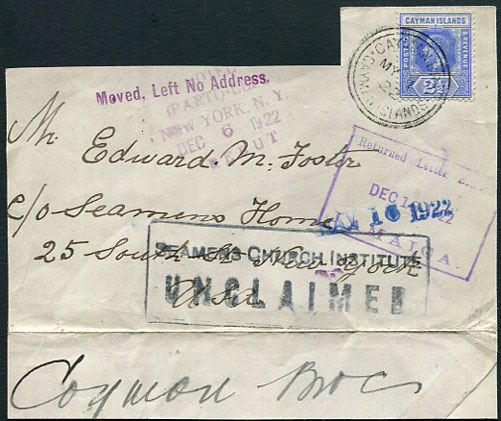 CAYMAN ISLANDS
POSTAGE & REVENUE
2½
CAYMAN
MY
CAYMAN ISLANDS
Moved, Left No Address.
NEW YORK, N.Y.
DEC 6 1922
Mr Edward M. Foster
c/o Seamens Home
25 South St New York
Usa
Returned Letter
DEC 1
10 1922
JAMAICA.
SEAMEN'S CHURCH INSTITUTE
UNCLAIMED
Cayman Brac